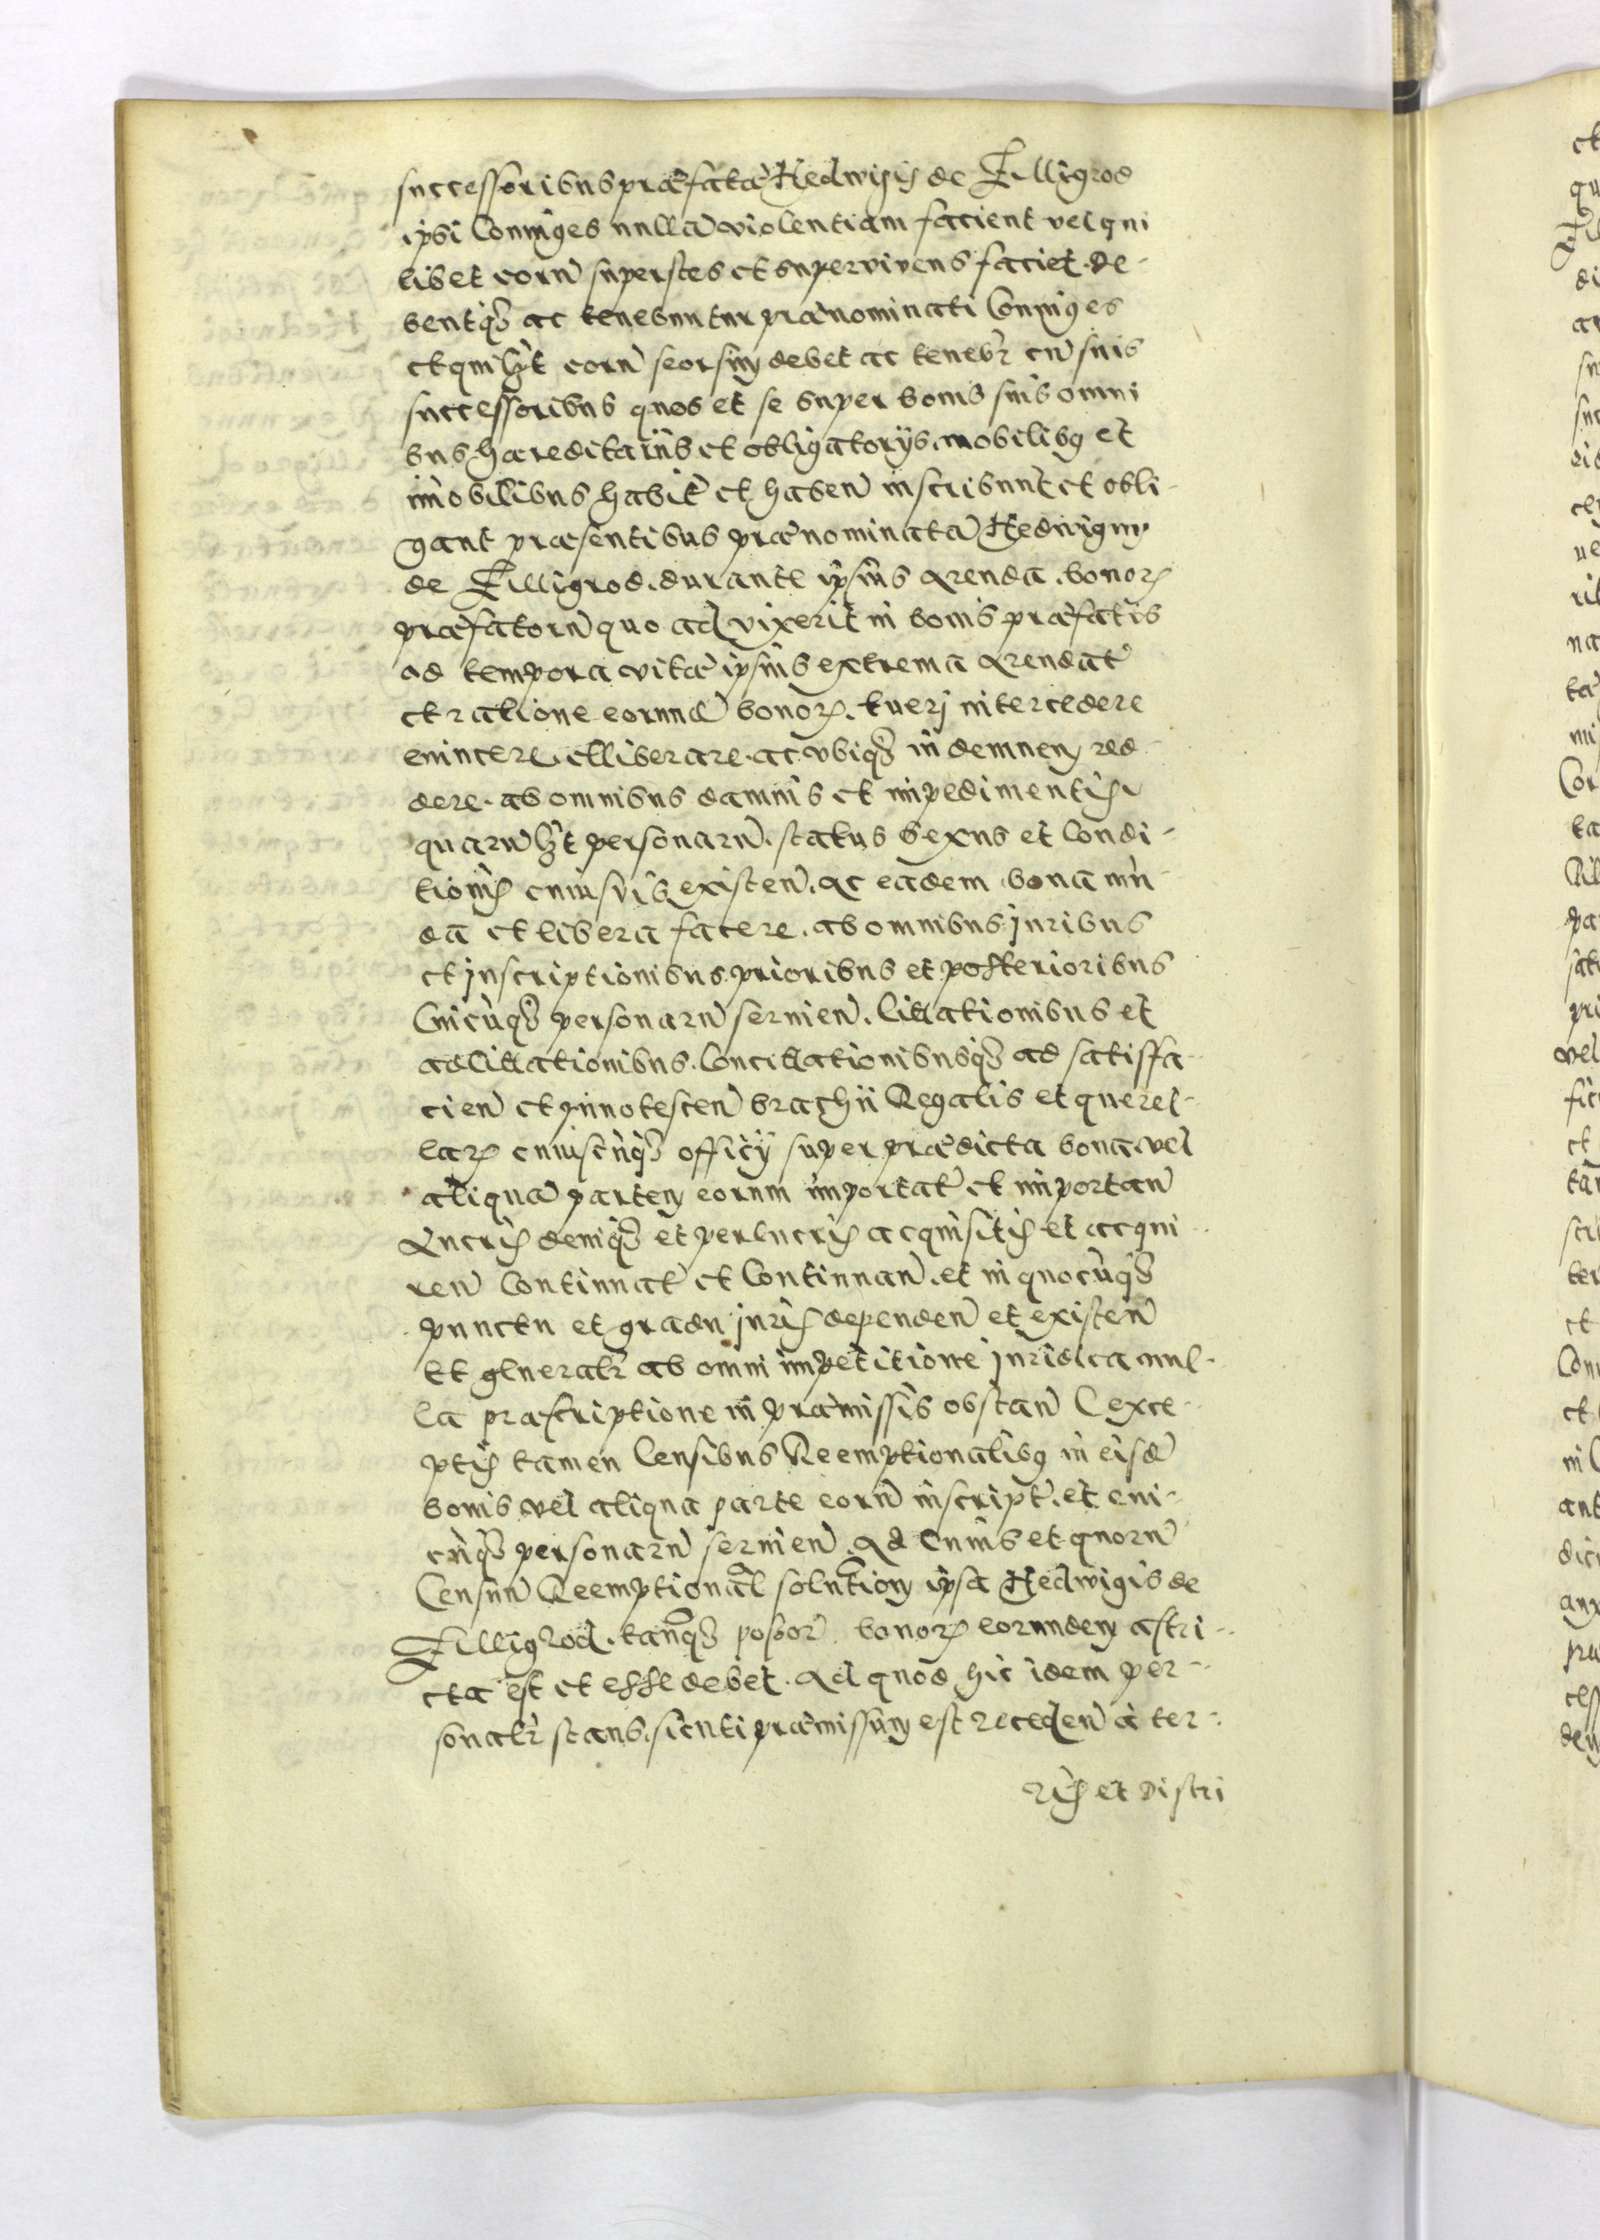 successoribus præfatæ Hedwigis de Filligrod
ipsi Coniuges nullā violentiam facient vel qui
libet eorū superstes et supervivens faciet. de-
bentqȝ ac tenebuntur prænominati Coniuges
et quilȝt eorū seorsim debet ac tenebr̄ cū suis
successoribus quos et se super bonis suis omni
bus hæreditariis et obligatoriis, mobilibus et
imobilibus habit̄ et haben̄ inscribunt et obli-
gant præsentibus prænominatā Hedwigim
de Filligrod. durante ipsius Arenda. bonor̄
præfatorū quo ad vixerit in bonis præfatis
ad tempora vitæ ipsius extrema Arendat̄
et ratione eorundē bonor̄. tueri intercedere
evincere, et liberare. ac ubiqȝ indemnem red
dere. ab omnibus damnis et impedimentis
quarūlȝt personarū. status sexus et Condi-
tionis cuiusvis existen̄. Ac eadem bona mū
da et libera facere. ab omnibus juribus
et jnscriptionibus prioribus et posterioribus
Cuicūqȝ personarū servien̄. Citationibus et
adcitationibus. Concitationibusqȝ ad satisfa-
cien̄ et innotescen̄ brachii Regalis et querel-
lar̄ cuiuscūqȝ officij super prædicta bona, vel
aliquā partem eorum importat̄ et importan̄
Lucris deniqȝ et perlucris acquisitis et acqui
ren̄ Continuat̄ et Continuan̄. et in quocūqȝ
punctu et gradu juris dependen̄ et existen̄
Et generalr̄ ab omni impetitione juridica nul-
la præscriptione in præmissis obstan̄ Exce-
ptis tamen Censibus Reemptionalibus in eisdē
bonis vel aliqua parte eorū inscript̄. et cui-
cūqȝ personarū servien̄. Ad Cuius et quorū
Censuū Reemptional solution̄ ipsa Hedwigis de
Filligrod. tanqȝ possor̄ bonor̄ eorundem astri-
cta est et esse debet. Ad quod hic idem per-
sonalr̄ stans. sicuti præmissum est receden̄ à ter-
ris et Distri